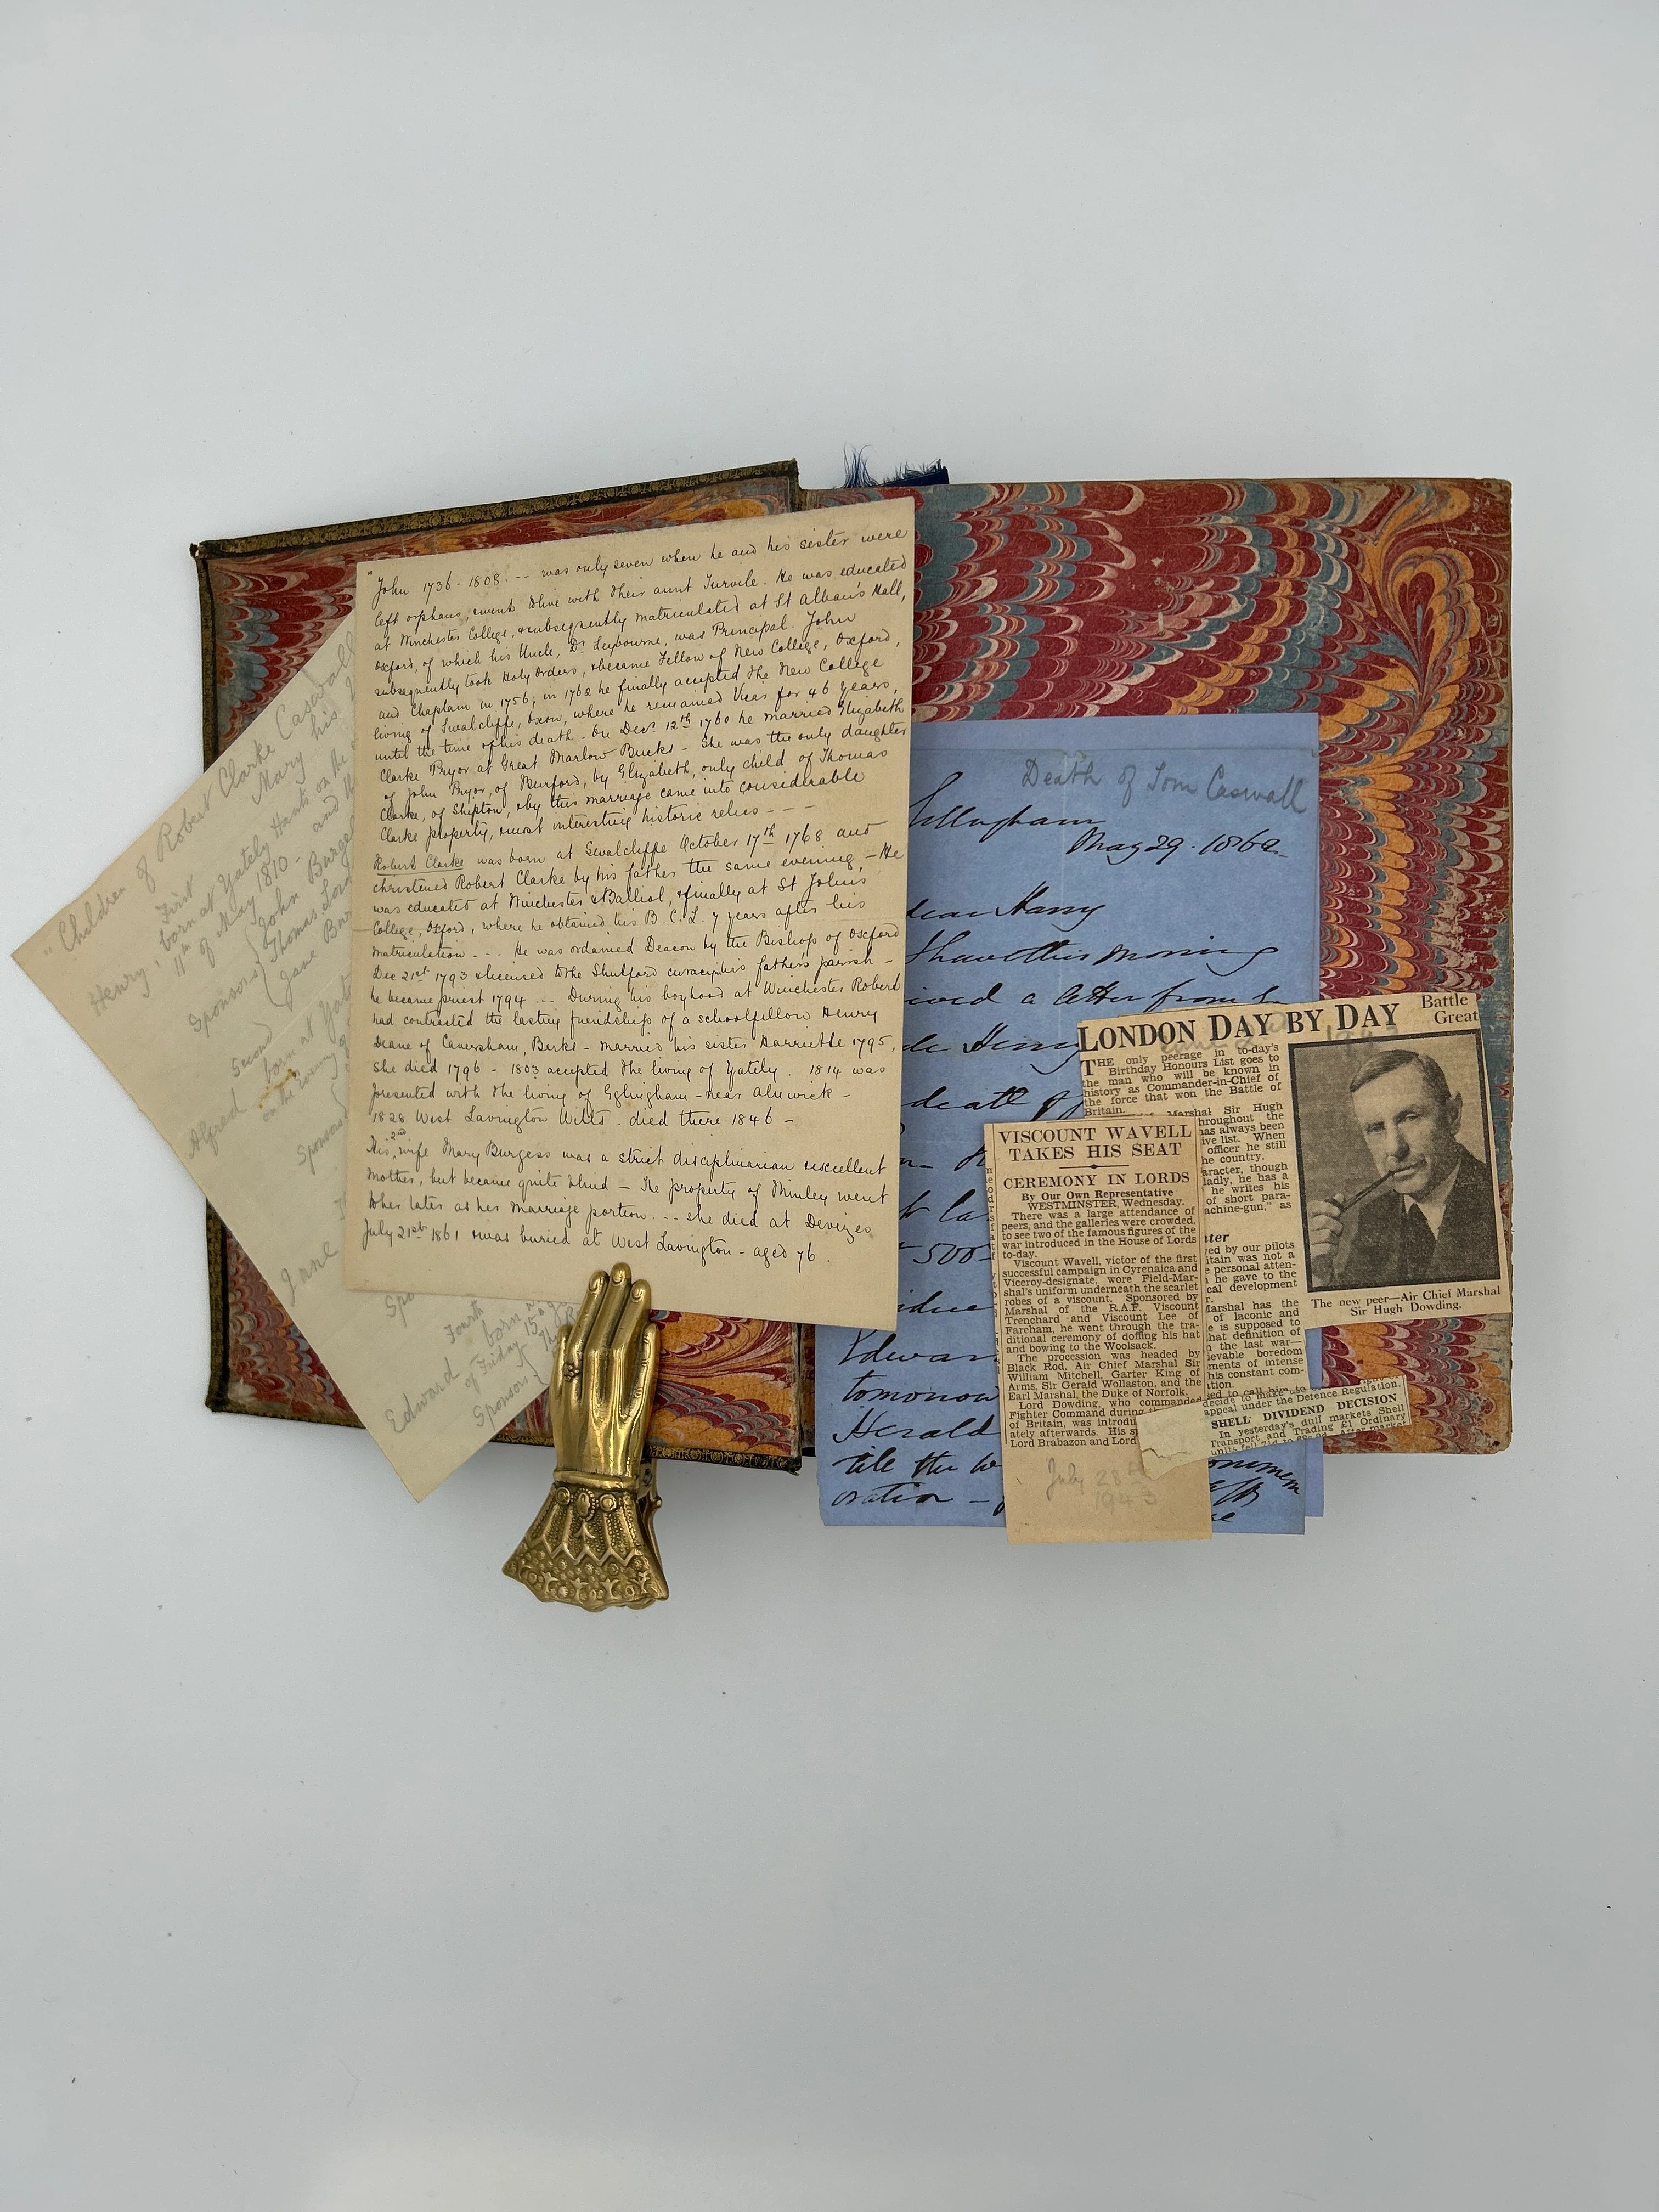 "John 1736-1808. -- was only seven when he and his sister were
left orphans, & went to live with their aunt Turvile. He was educated
at Winchester College, & subsequently matriculated at St Alban's Hall,
Oxford, of which his Uncle, Dr. Leybourne, was Principal. John
subsequently took Holy Orders, & became Fellow of New College, Oxford,
and Chaplain in 1756; in 1762 he finally accepted the New College
living of Swalcliffe, Oxon, where he remained Vicar for 46 years,
until the time of his death. On Decr. 12th 1760 he married Elizabeth
Clarke Pryor at Great Marlow Bucks - She was the only daughter
of John Pryor, of Burford, by Elizabeth, only child of Thomas
Clarke, of Shipton, & by this marriage came into considerable
Clarke property, & most interesting historic relics - - -
Robert Clarke was born at Swalcliffe October 17th 1768 and
christened Robert Clarke by his father the same evening, - He
was educated at Winchester & Balliol, & finally at St John's
College, Oxford, where he obtained his B.C.L. 7 years after his
matriculation - - . He was ordained Deacon by the Bishop of Oxford
Dec 21st 1793 & licensed to the Shutford curacy, his father's parish -
he became priest 1794 ... During his boyhood at Winchester Robert
had contracted the lasting friendship of a schoolfellow Henry
Deane of Caversham, Berks - married his sister Harriette 1795,
She died 1796 - 1803 accepted the living of Yately. 1814 was
presented with the living of Eglingham - near Alnwick -
1828 West Lavington Wilts. died there 1846 -
His 2nd wife Mary Burgess was a strict disciplinarian & excellent
Mother, but became quite blind - The property of Minley went
to her later as her marriage portion. -- She died at Devizes
July 21st 1861 & was buried at West Lavington - aged 76.
"Children of Robert Clarke Caswall
Mary his
First
Henry, born at Yately Hants on the
11th of May 1810 - and
Sponsors { John Burge
Thomas
Jane
Second
Alfred born at Yate
on the evening of
Sponsors {
Jane
Spo
Fourth
Edward born
15
of Friday
Sponsors {
Death of Tom Caswall
May 29. 1862.
dear Harry
I have this morning
a letter from
Henry
death of
500
Edwar
tomorrow
Herald
till the
oration -
LONDON DAY BY DAY
Battle
Great
THE only peerage in to-day's
Birthday Honours List goes to
the man who will be known in
history as Commander-in-Chief of
the force that won the Battle of
Britain.
Marshal Sir Hugh
hroughout the
has always been
ive list. When
officer he still
he country.
aracter, though
ladly, he has a
he writes his
of short para-
achine-gun," as
ter
ved by our pilots
itain was not a
e personal atten-
h he gave to the
cal development
r.
Marshal has the
of laconic and
e is supposed to
hat definition of
n the last war—
ievable boredom
ments of intense
his constant com-
ation.
sed to call him to
The new peer—Air Chief Marshal
Sir Hugh Dowding.
VISCOUNT WAVELL
TAKES HIS SEAT
CEREMONY IN LORDS
By Our Own Representative
WESTMINSTER, Wednesday.
There was a large attendance of
peers, and the galleries were crowded,
to see two of the famous figures of the
war introduced in the House of Lords
to-day.
Viscount Wavell, victor of the first
successful campaign in Cyrenaica and
Viceroy-designate, wore Field-Mar-
shal's uniform underneath the scarlet
robes of a viscount. Sponsored by
Marshal of the R.A.F. Viscount
Trenchard and Viscount Lee of
Fareham, he went through the tra-
ditional ceremony of doffing his hat
and bowing to the Woolsack.
The procession was headed by
Black Rod, Air Chief Marshal Sir
William Mitchell, Garter King of
Arms, Sir Gerald Wollaston, and the
Earl Marshal, the Duke of Norfolk.
Lord Dowding, who commanded
Fighter Command during
of Britain, was introdu
ately afterwards. His s
Lord Brabazon and Lord
July 28th
1943
decide to make
appeal under the Defence Regulation.
SHELL DIVIDEND DECISION
In yesterday's dull markets Shell
Transport and Trading £1 Ordinary